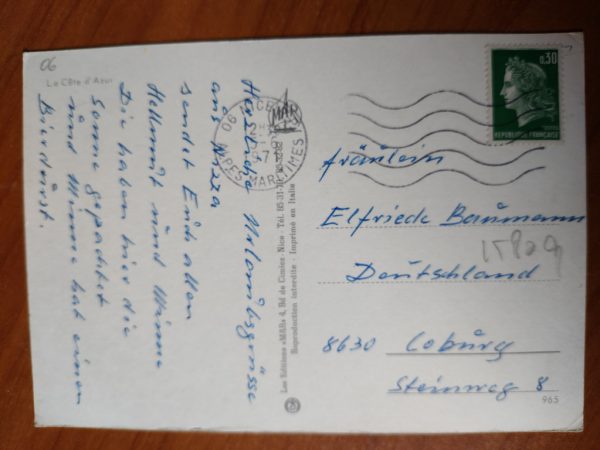 06
La Côte d'Azur
Herzliche Urlaubsgrüsse
aus Nizza
sendet Euch allen
Hellmut und Minne
Die haben hier die
Sonne gepachtet
und Minne hat einen
Bierdurst.
06 NICE
ALPES MARITIMES
MAR
Les Editions «MAR» 4, Bd de Cimiez - Nice - Tél. 85-31-70
Reproduction interdite - Imprimé en Italie
0,30
REPUBLIQUE FRANÇAISE
Fräulein
Elfriede Baumann
Deutschland
8630 Coburg
Steinweg 8
965